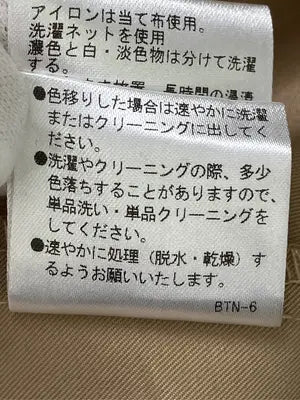 アイロンは当て布使用。
洗濯ネットを使用
濃色と白・淡色物は分けて洗濯
する。
長時間の浸漬
●色移りした場合は速やかに洗濯
またはクリーニングに出してく
ださい。
●洗濯やクリーニングの際、多少
色落ちすることがありますので、
単品洗い・単品クリーニングを
してください。
●速やかに処理（脱水・乾燥）す
るようお願いいたします。
BTN-6